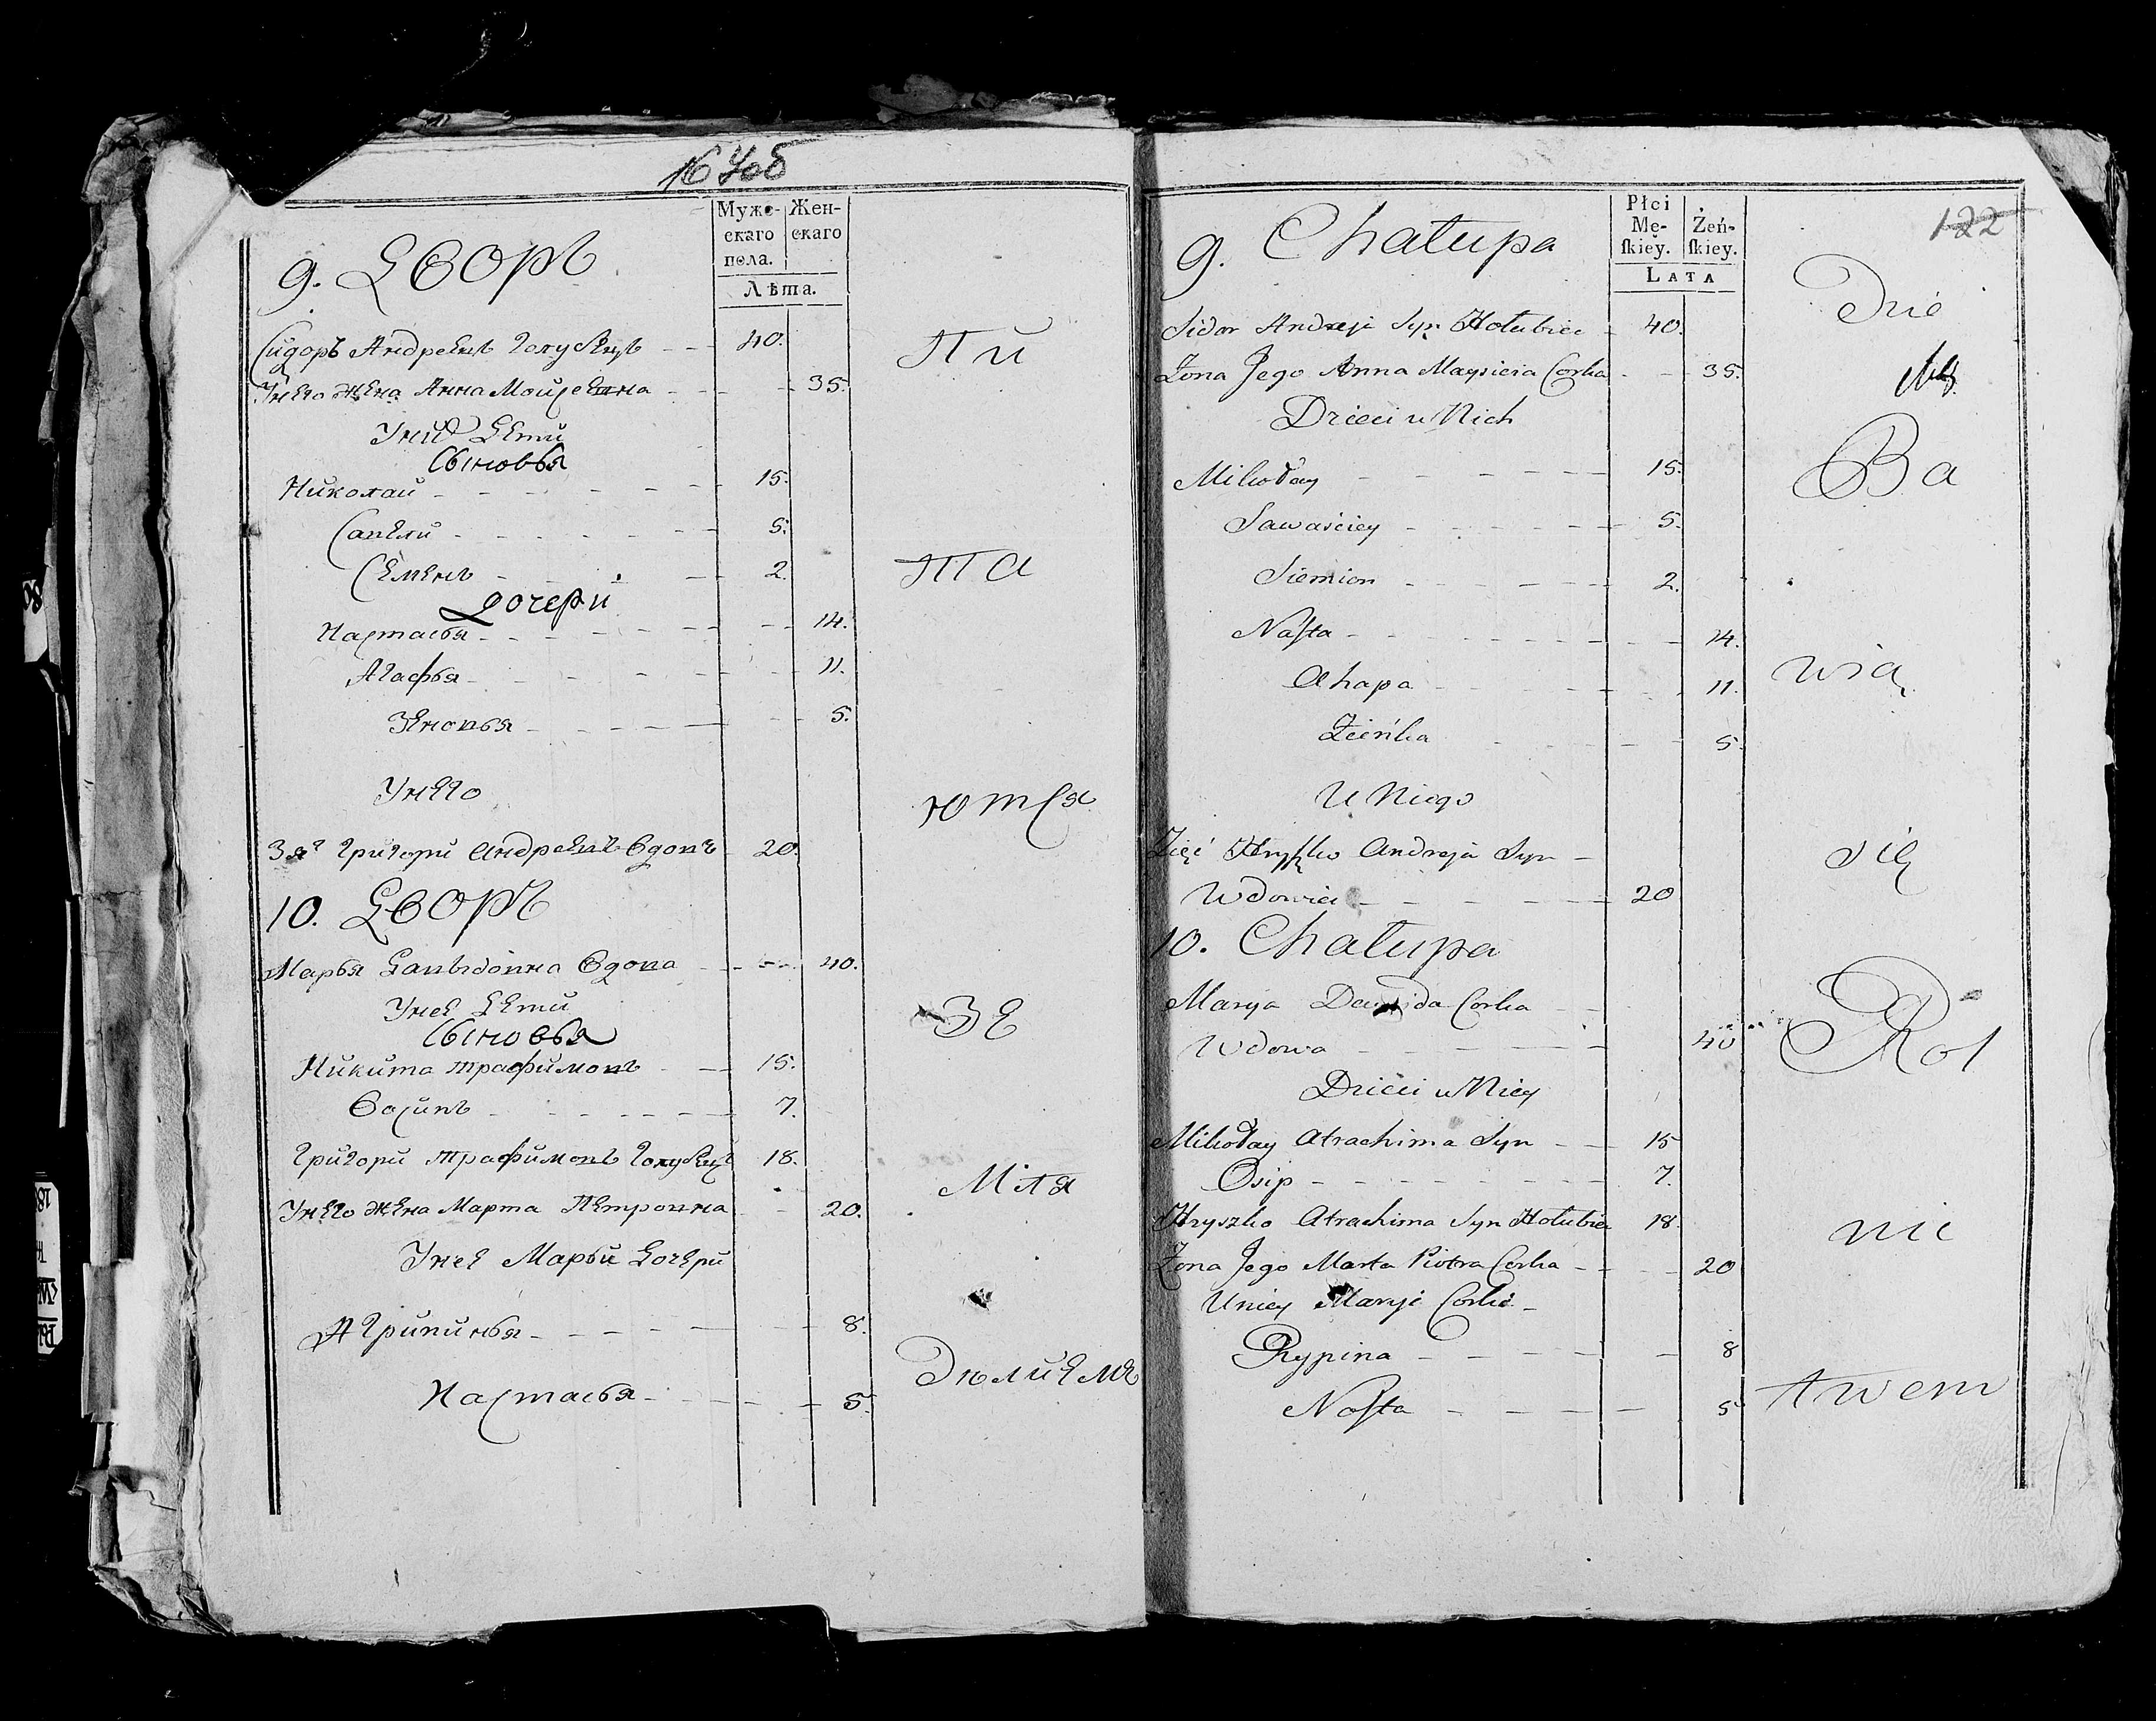 167об
Муже-скаго пола. Жен-скаго
Лѣта.
9. Дворъ
Сидоръ Андреевъ Голубецъ 40.
У него жена Анна Моисевна 35.
У них дети
Сыновья
Николай 15.
Савели 5.
Семенъ 2.
Дочери
Настасья 14.
Агафья 11.
Зеновья 5.
У него
Зят Григори Андреевъ Вдовъ 20.
10. Дворъ
Марья Давыдовна Вдова 40.
У неё дети
Сыновья
Никита Трафимовъ 15.
Восипъ 7.
Григори Трафимовъ Голубецъ 18.
У него жена Марта Петровна 20.
У неё Марьи дочери
Агрипинья 8.
Настасья 5.
Пи
та
ются
зе
мля
Дѣлиемъ
122
Płci Mę-ſkiey. Żeń-ſkiey.
LATA
9. Chałupa
Sidor Andreja Syn Hołubiec 40.
Żona Jego Anna Maysieia Corka 35.
Dzieci u Nich
Mikołay 15.
Sawaściey 5.
Siemion 2.
Naſta 14.
Ahapa 11.
Zieńka 5.
U Niego
Zięć Hryſzko Andreja Syn
Wdowiec 20
10. Chałupa
Marya Dawida Corka
Wdowa 40
Dzieci u Niey
Mikołay Atrachima Syn 15
Osip 7.
Hryszko Atrachima Syn Hołubiec 18.
Żona Jego Marta Piotra Corka 20
U niey Maryi Corki
Rypina 8
Naſta 5
Ba
wią
się
Rol
nic
twem